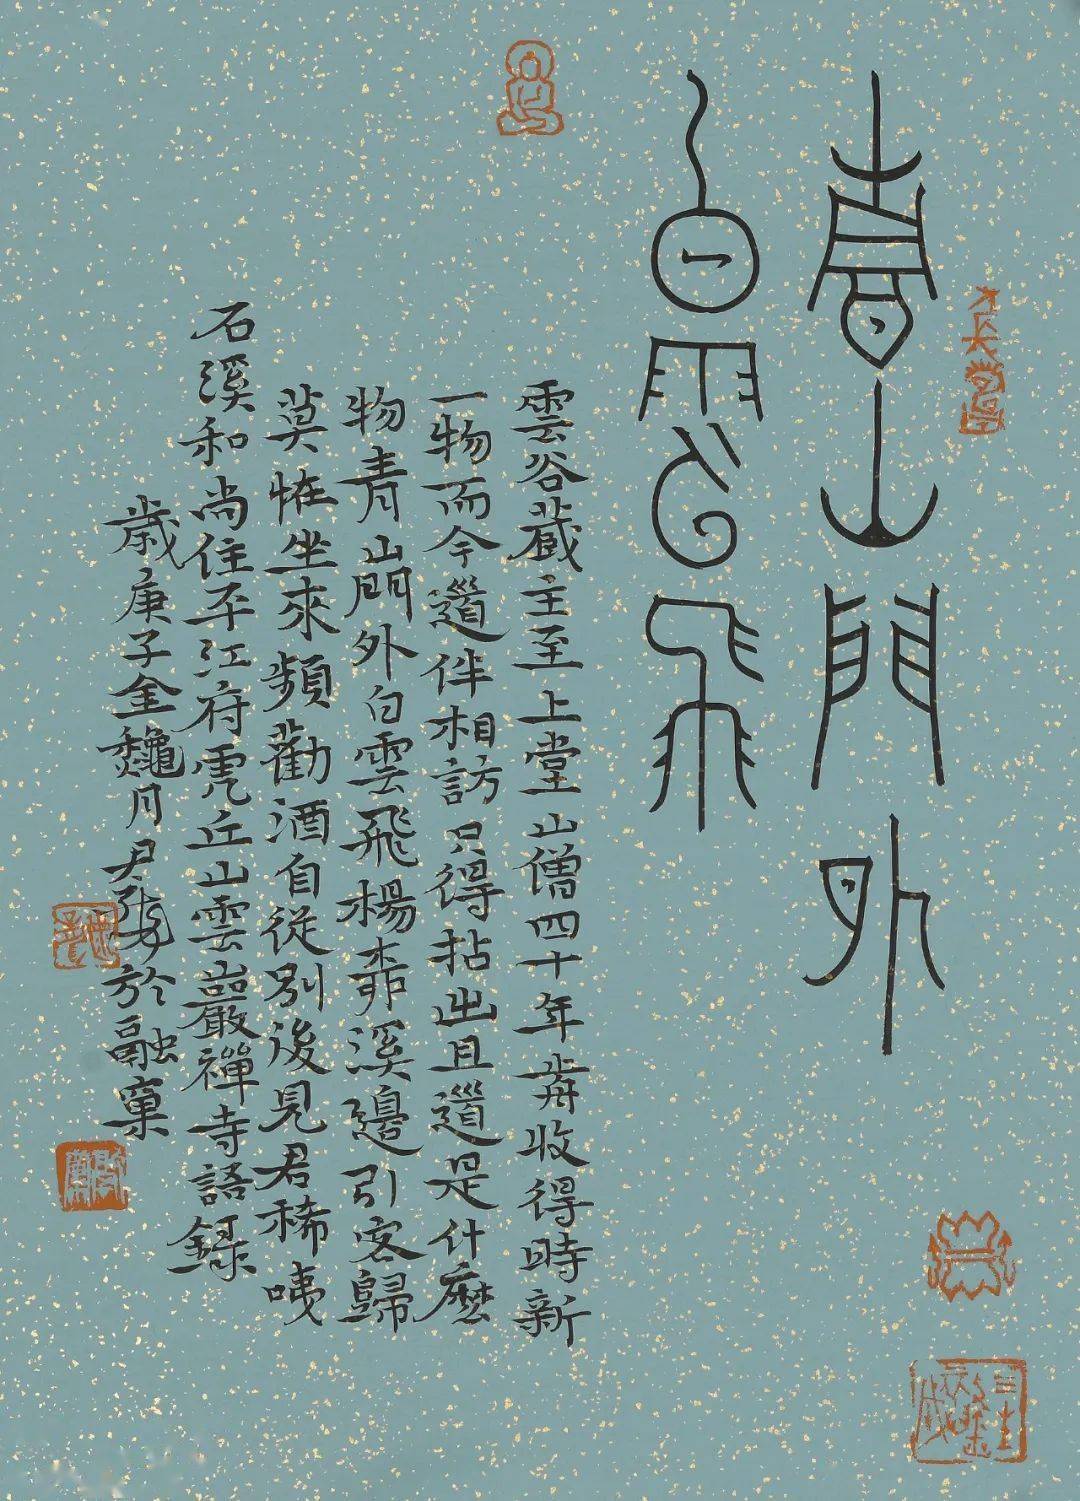 青山門外
白雲飛
雲谷蔵主至上堂山僧四十年歬收得時新
一物而今道伴相訪只得拈出且道是什麼
物青山門外白雲飛楊桺溪邊引客歸
莫恠坐來頻勸酒自從別後見君稀咦
石溪和尚住平江府虎丘山雲巖禪寺語錄
歲庚子金龝月君於融窠